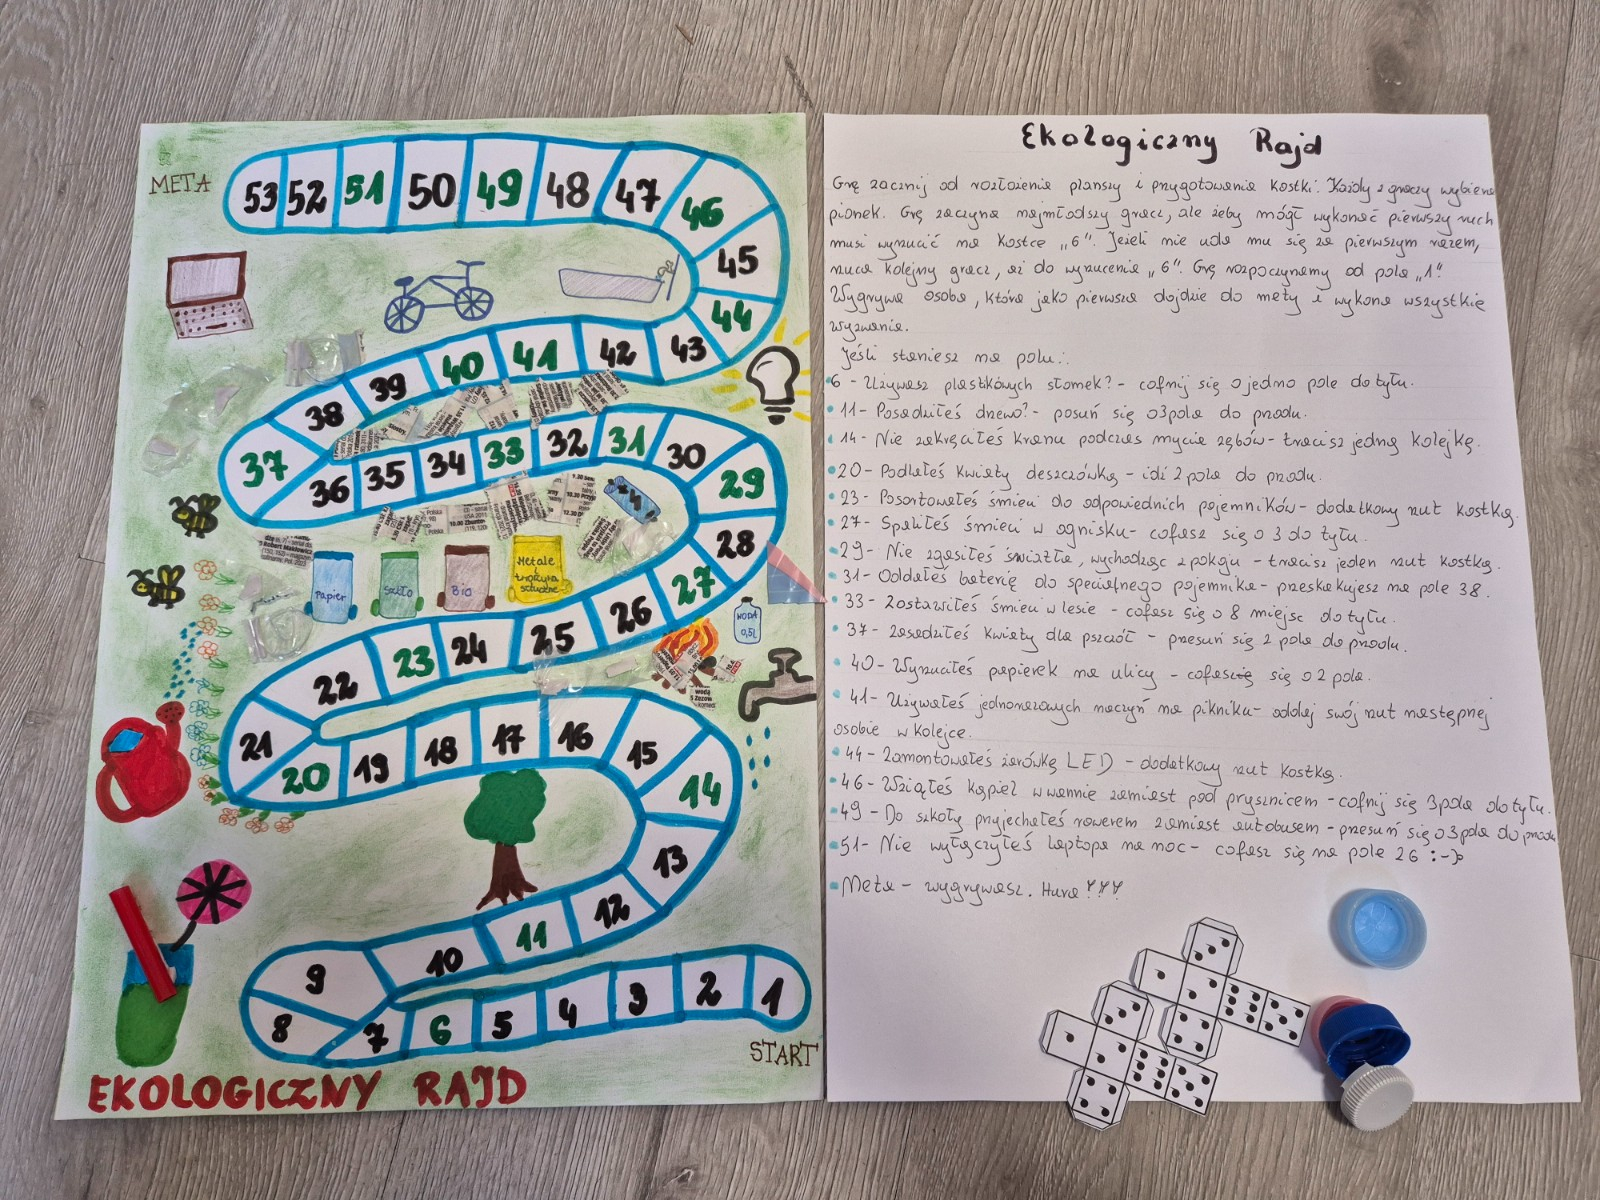 META
53 52 51 50 49 48 47 46
45
44
43 42 41 40 39 38
37
36 35 34 33 32 31 30
29
28
27
26 25 24 23 22
21
20 19 18 17 16 15
14
13
12 11 10 9
8
7 6 5 4 3 2 1
START
Papier
Szkło
Bio
Metale
i
tworzywa
sztuczne
WODA
0,5L
EKOLOGICZNY RAJD
Ekologiczny Rajd
Grę zacznij od rozłożenia planszy i przygotowania kostki. Każdy z graczy wybiera
pionek. Grę zaczyna najmłodszy gracz, ale żeby mógł wykonać pierwszy ruch
musi wyrzucić na kostce „6". Jeżeli nie uda mu się za pierwszym razem,
rzuca kolejny gracz, aż do wyrzucenia „6". Grę rozpoczynamy od pola „1".
Wygrywa osoba, która jako pierwsza dojdzie do mety i wykona wszystkie
wyzwania.
Jeśli staniesz na polu:
6 - Używasz plastkowych słomek? - cofnij się o jedno pole do tyłu.
11 - Posadziłeś drzewo? - posuń się o 3 pola do przodu.
14 - Nie zakręciłeś kranu podczas mycia zębów - tracisz jedną kolejkę.
20 - Podlałeś kwiaty deszczówką - idź 2 pola do przodu.
23 - Posortowałeś śmieci do odpowiednich pojemników - dodatkowy rzut kostką.
27 - Spaliłeś śmieci w ognisku - cofasz się o 3 do tyłu.
29 - Nie zgasiłeś światła, wychodząc z pokoju - tracisz jeden rzut kostką.
31 - Oddałeś baterię do specjalnego pojemnika - przeskakujesz na pole 38.
33 - Zostawiłeś śmieci w lesie - cofasz się o 8 miejsc do tyłu.
37 - Zasadziłeś kwiaty dla pszczół - przesuń się 2 pola do przodu.
40 - Wyrzuciłeś papierek na ulicy - cofasz się o 2 pola.
41 - Używałeś jednorazowych naczyń na pikniku - oddaj swój rzut następnej
osobie w kolejce.
44 - Zamontowałeś żarówkę LED - dodatkowy rzut kostką.
46 - Wziąłeś kąpiel w wannie zamiast pod prysznicem - cofnij się 3 pola do tyłu.
49 - Do szkoły przyjechałeś rowerem zamiast autobusem - przesuń się o 3 pola do przodu
51 - Nie wyłączyłeś laptopa na noc - cofasz się na pole 26 :-)
Meta - wygrywasz. Hura!!!